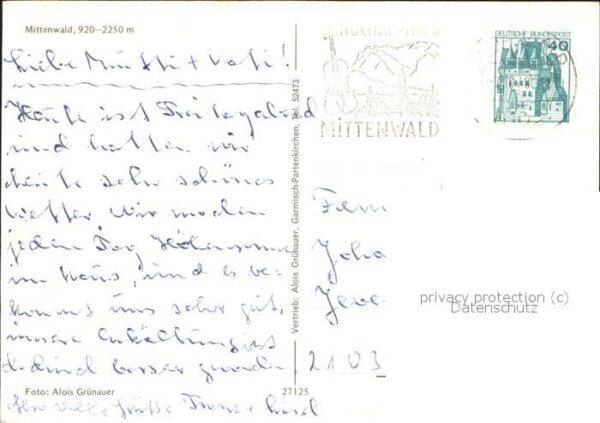 Mittenwald, 920–2250 m
Liebe Mutti + Vati!
Heute ist Freitagabend
und hatten wir
heute sehr schönes
Wetter. Wir machen
jeden Tag Höhensonne
im Haus, und es be-
kommt uns sehr gut,
unsere Erkältung ist
dadurch besser geworden
Foto: Alois Grünauer
27125
Viele Grüße Franz + Liesel
Vertrieb: Alois Grünauer, Garmisch-Partenkirchen, Tel. 52473
HOCHALPINES
MITTENWALD
DEUTSCHE BUNDESPOST
40
Fam
Joha
2103
privacy protection (c)
Datenschutz